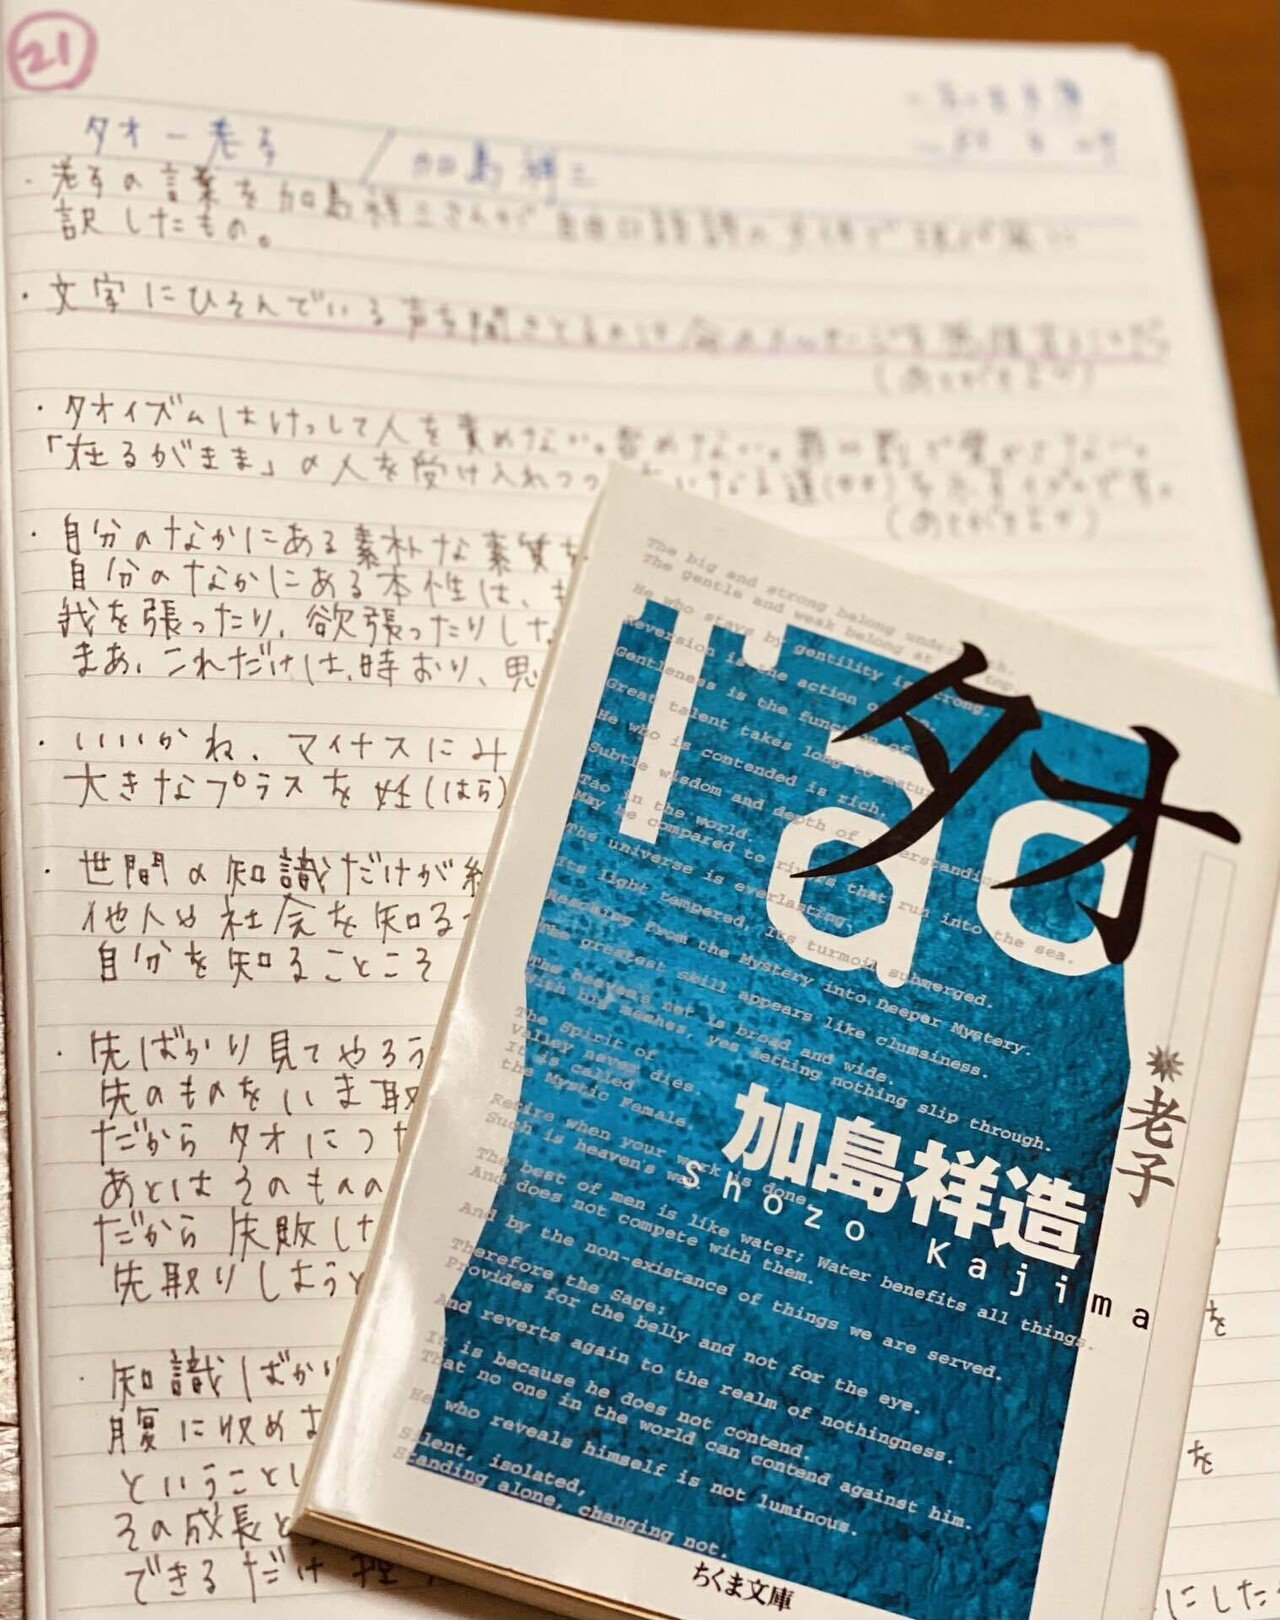 21
タオー老子 / 加島祥造
・老子の言葉を加島祥造さんが自由口語詩の
訳したもの。
・文字にひそんでいる声を聞きとるのは命のメッセージを
(あとがきより)
・タオイズムはけっして人を責めない。咎めない。罪や罰で脅かさない。
「在るがまま」の人を受け入れつつ
(あとがきより)
・自分のなかにある素朴な素質を
自分のなかにある本性は、
我を張ったり、欲張ったりしな
まあ、これだけは、時おり、思
・いいかね、マイナスにみ
大きなプラスを妊(はら)
・世間の知識だけが
他人や社会を知る
自分を知ることこそ
・先ばかり見てやろう
先のものをいま取
だから タオにつ
あとはそのものの
だから 失敗し
先取りしようと
・知識ばかり
腹に収め
ということ
その成長と
できるだけ
を
を
にした
The big and strong belong underneath.
The gentle and weak belong at the top.
He who stays by gentility is strong.
Reversion is the action of Tao.
Gentleness is the function of
Great talent takes long to mature
He who is contended is rich.
Subtle wisdom and depth of understanding
Tao in the world.
May be compared to rivers that run into the sea.
The universe is everlasting,
Its light tempered, Its turmoil submerged.
Reaching from the Mystery into Deeper Mystery.
The greatest skill appears like clumsiness.
The heaven's net is broad and wide.
With big meshes, yes letting nothing slip through.
The Spirit of
Valley never dies.
It is called
the Mystic Female
Retire when your work is done
Such is heaven's way.
The best of men is like water; Water benefits all things.
And does not compete with them.
And by the non-existance of things we are served.
Therefore the Sage:
Provides for the belly and not for the eye.
And reverts again to the realm of nothingness.
It is because he does not contend.
That no one in the world can contend against him.
He who reveals himself is not luminous.
Silent, isolated,
Standing alone, changing not.
Tao
タオ
老子
加島祥造
Shozo Kajima
ちくま文庫